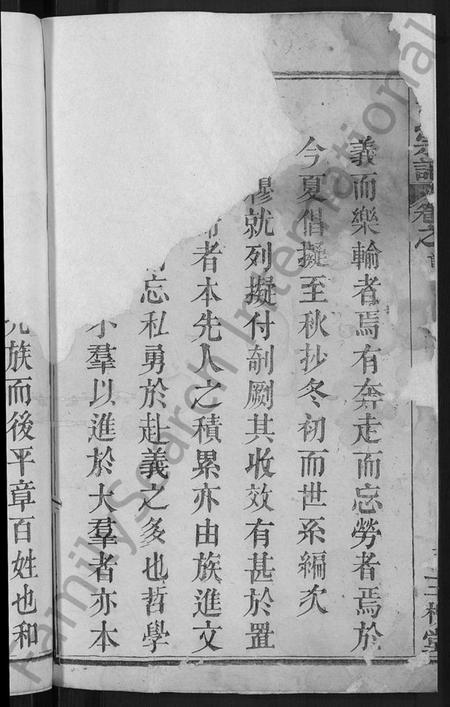 宗譜卷之首
義而樂輸者焉有奔走而忘勞者焉於
今夏倡擬至秋抄冬初而世系編次
穆就列擬付剞劂其收效有甚於置
者本先人之積累亦由族進文
忘私勇於赴義之多也哲學
小羣以進於大羣者亦本
族而後平章百姓也和
FamilySearch International